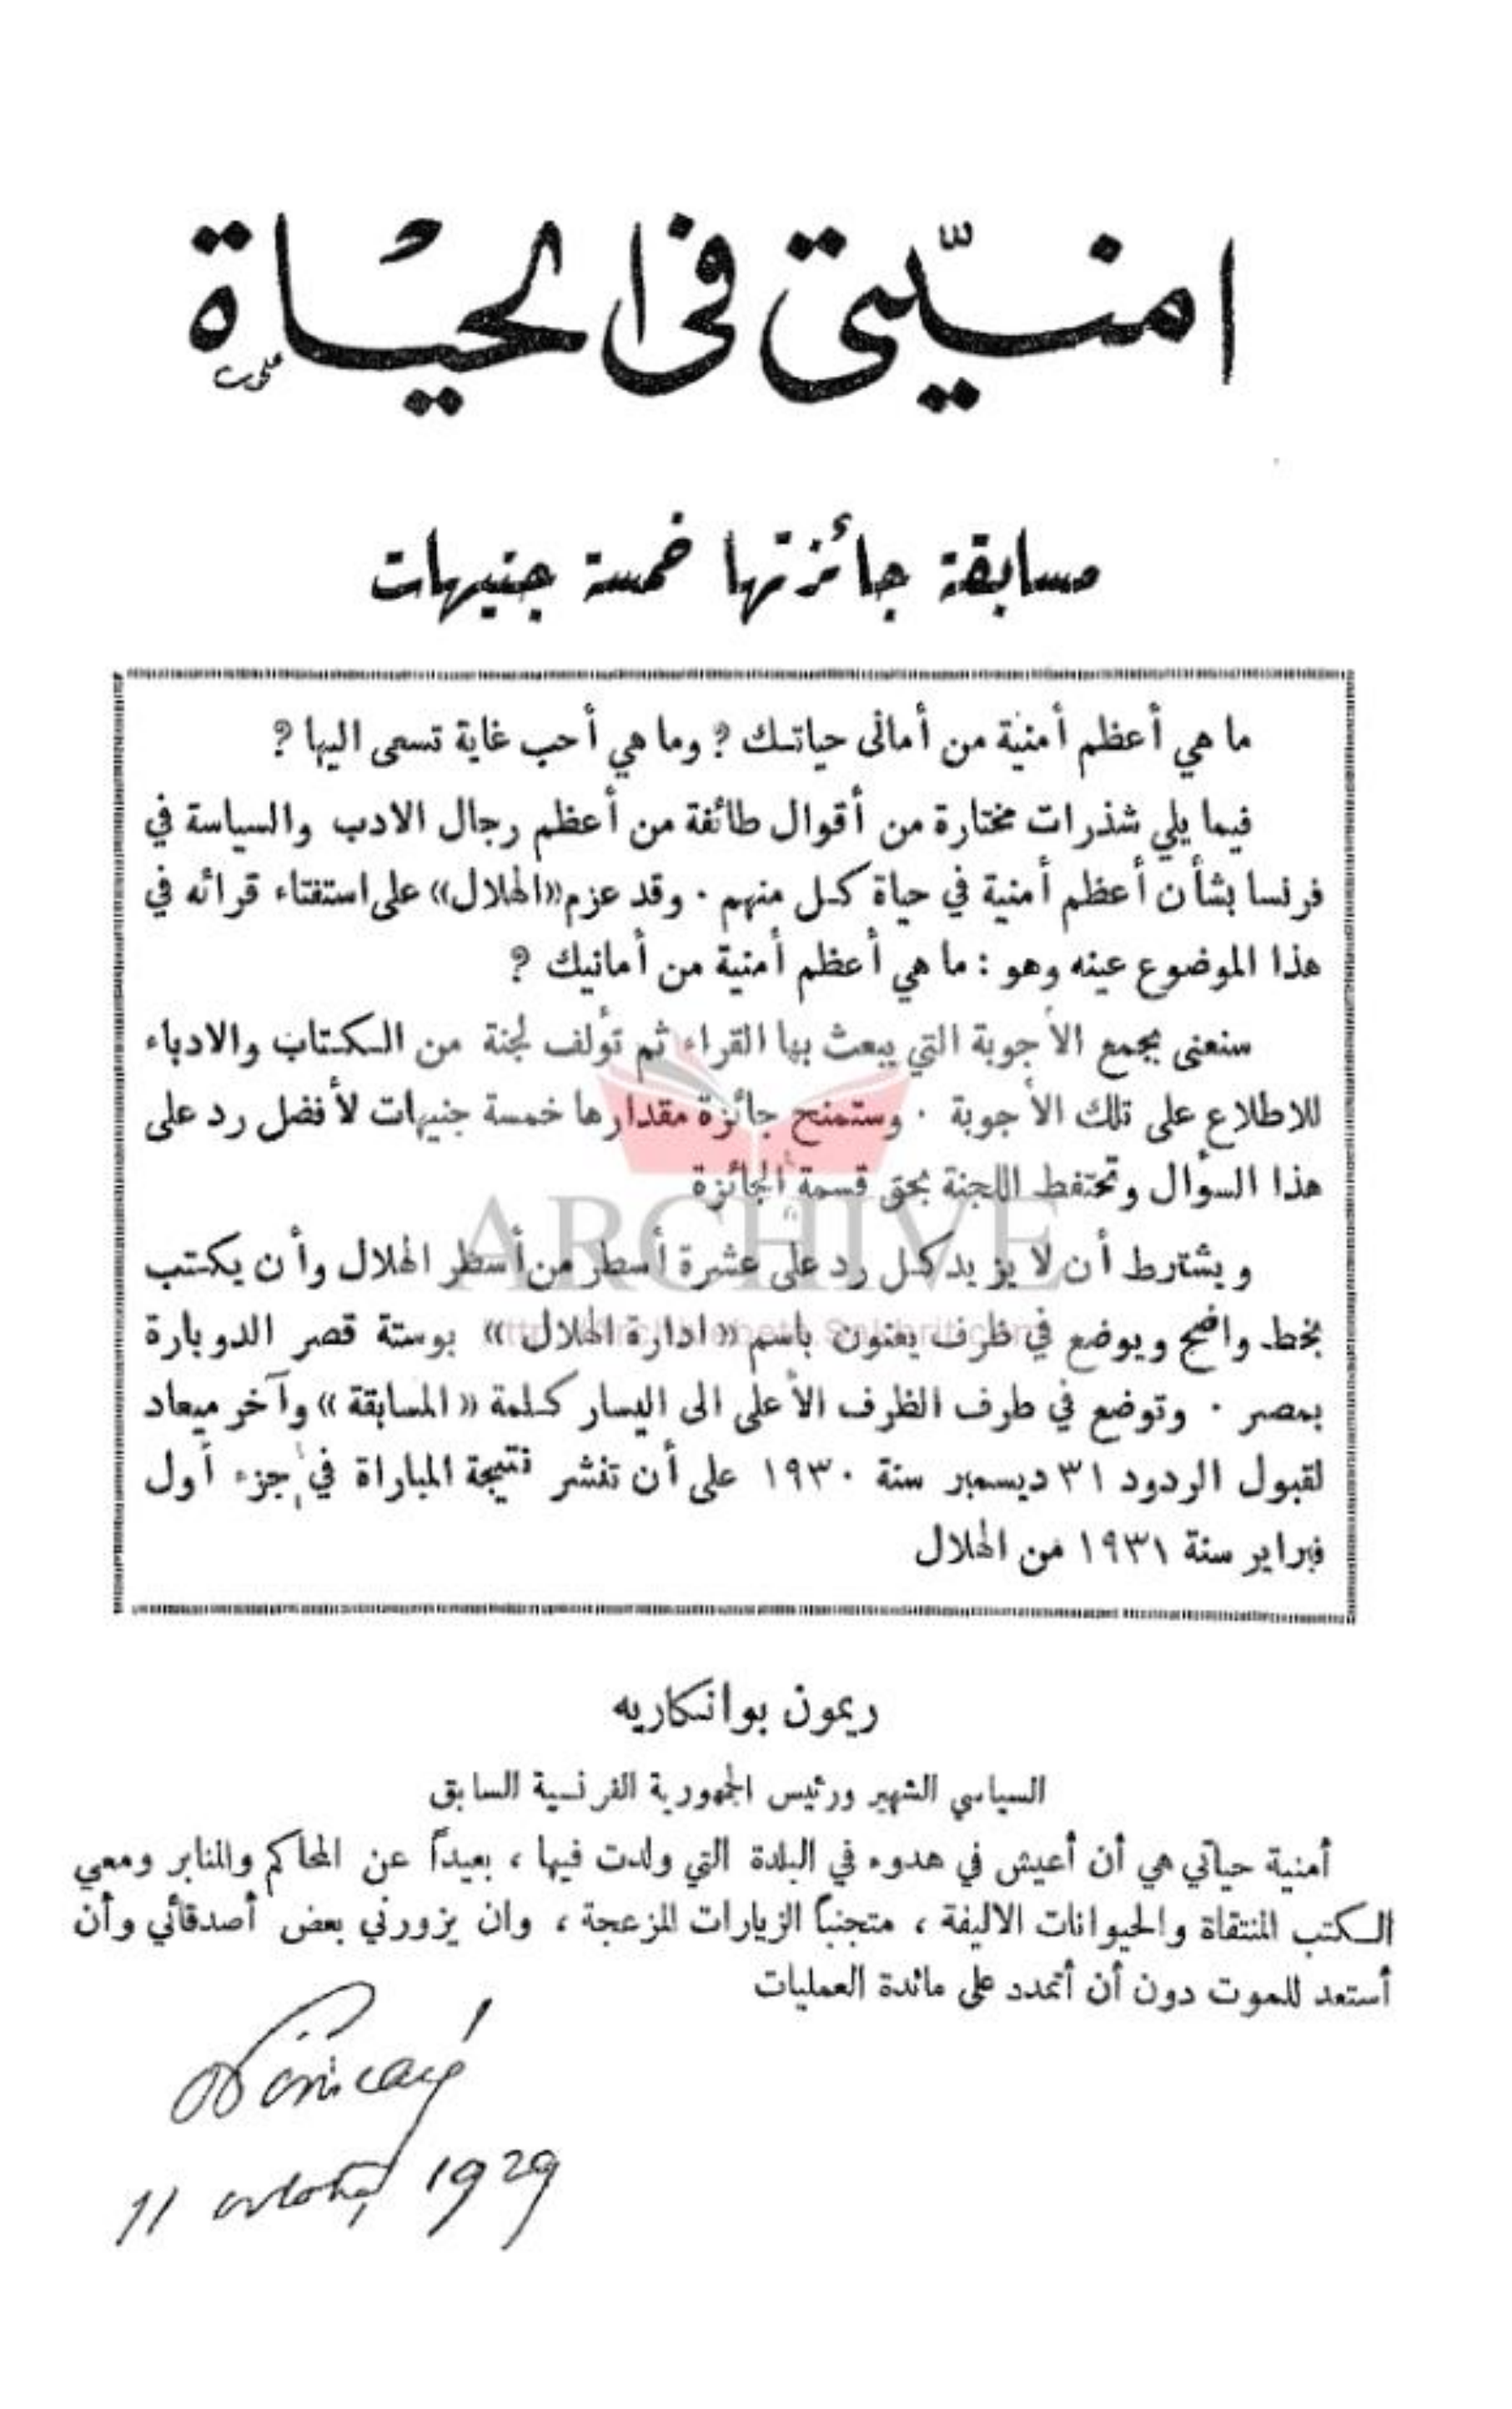 امنيّتى فى الحياة
مسابقة جائزتها خمسة جنيهات
ما هي أعظم أمنية من أمانى حياتك ؟ وما هي أحب غاية تسعى اليها ؟
فيما يلي شذرات مختارة من أقوال طائفة من أعظم رجال الادب والسياسة في
فرنسا بشأن أعظم أمنية في حياة كل منهم . وقد عزم «الهلال» على استفتاء قرائه في
هذا الموضوع عينه وهو : ما هي أعظم أمنية من أمانيك ؟
سنعنى بجمع الأجوبة التي يبعث بها القراء ثم تؤلف لجنة من الكتاب والادباء
للاطلاع على تلك الأجوبة . وستمنح جائزة مقدارها خمسة جنيهات لأفضل رد على
هذا السؤال وتحتفظ اللجنة بحق قسمة الجائزة
ARCHIVE
ويشترط أن لا يزيد كل رد على عشرة أسطر من أسطر الهلال وأن يكتب
بخط واضح ويوضع في ظرف يعنون باسم « ادارة الهلال » بوستة قصر الدوبارة
بمصر . وتوضع في طرف الظرف الأعلى الى اليسار كلمة « المسابقة » وآخر ميعاد
لقبول الردود ٣١ ديسمبر سنة ١٩٣٠ على أن تنشر نتيجة المباراة في جزء أول
فبراير سنة ١٩٣١ من الهلال
ريمون بوانكاريه
السياسي الشهير ورئيس الجمهورية الفرنسية السابق
أمنية حياتي هي أن أعيش في هدوء في البلدة التي ولدت فيها ، بعيداً عن المحاكم والمنابر ومعي
الكتب المنتقاة والحيوانات الاليفة ، متجنباً الزيارات المزعجة ، وان يزورني بعض أصدقائي وأن
أستعد للموت دون أن أتمدد على مائدة العمليات
Poincaré
11 octobre 1929